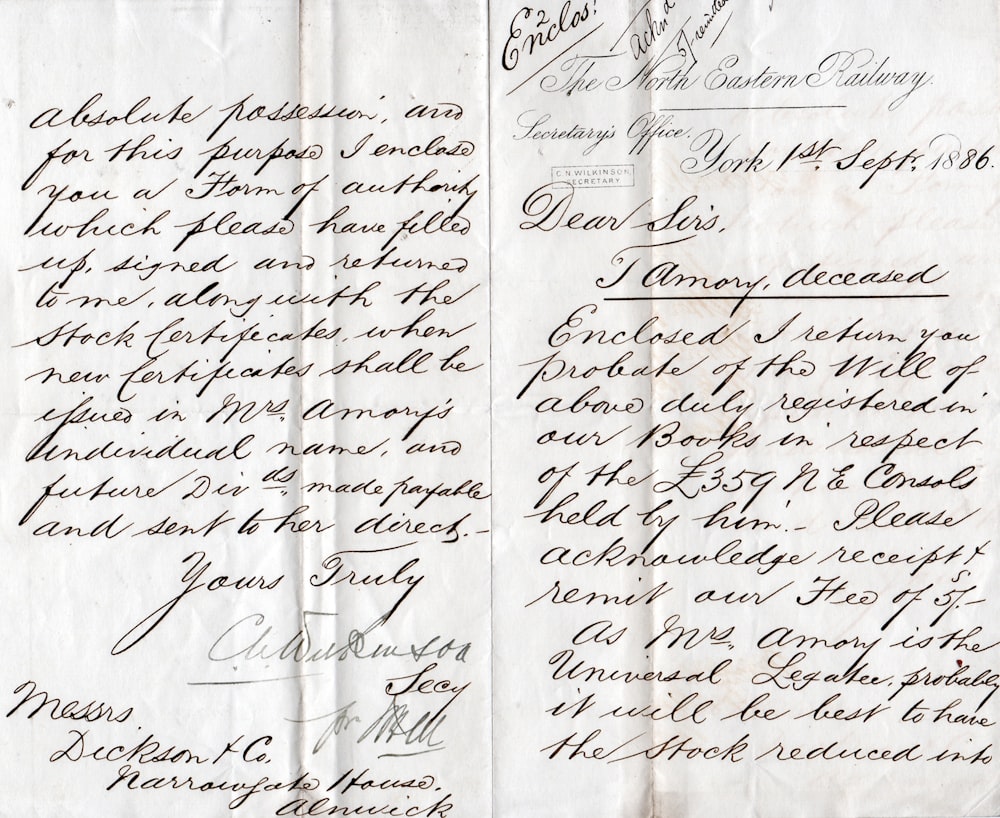 2
Enclos:
ackn^d
5/ remitted
The North Eastern Railway.
Secretary's Office.
C.N. WILKINSON,
SECRETARY
York 1st Sept. 1886.
Dear Sirs,
T Amory, deceased
Enclosed I return you
probate of the Will of
above duly registered in
our Books in respect
of the £359 N E Consols
held by him. - Please
acknowledge receipt &
remit our Fee of 5/-
As Mrs. Amory is the
Universal Legatee, probably
it will be best to have
the Stock reduced into
absolute possession, and
for this purpose I enclose
you a Form of authority
which please have filled
up, signed and returned
to me, along with the
Stock Certificates, when
new Certificates shall be
issued in Mrs. Amory's
individual name, and
future Div^ds. made payable
and sent to her direct. -
Yours Truly
C N Wilkinson
Secy
Messrs.
Dickson & Co.
Narrowgate House.
Alnwick